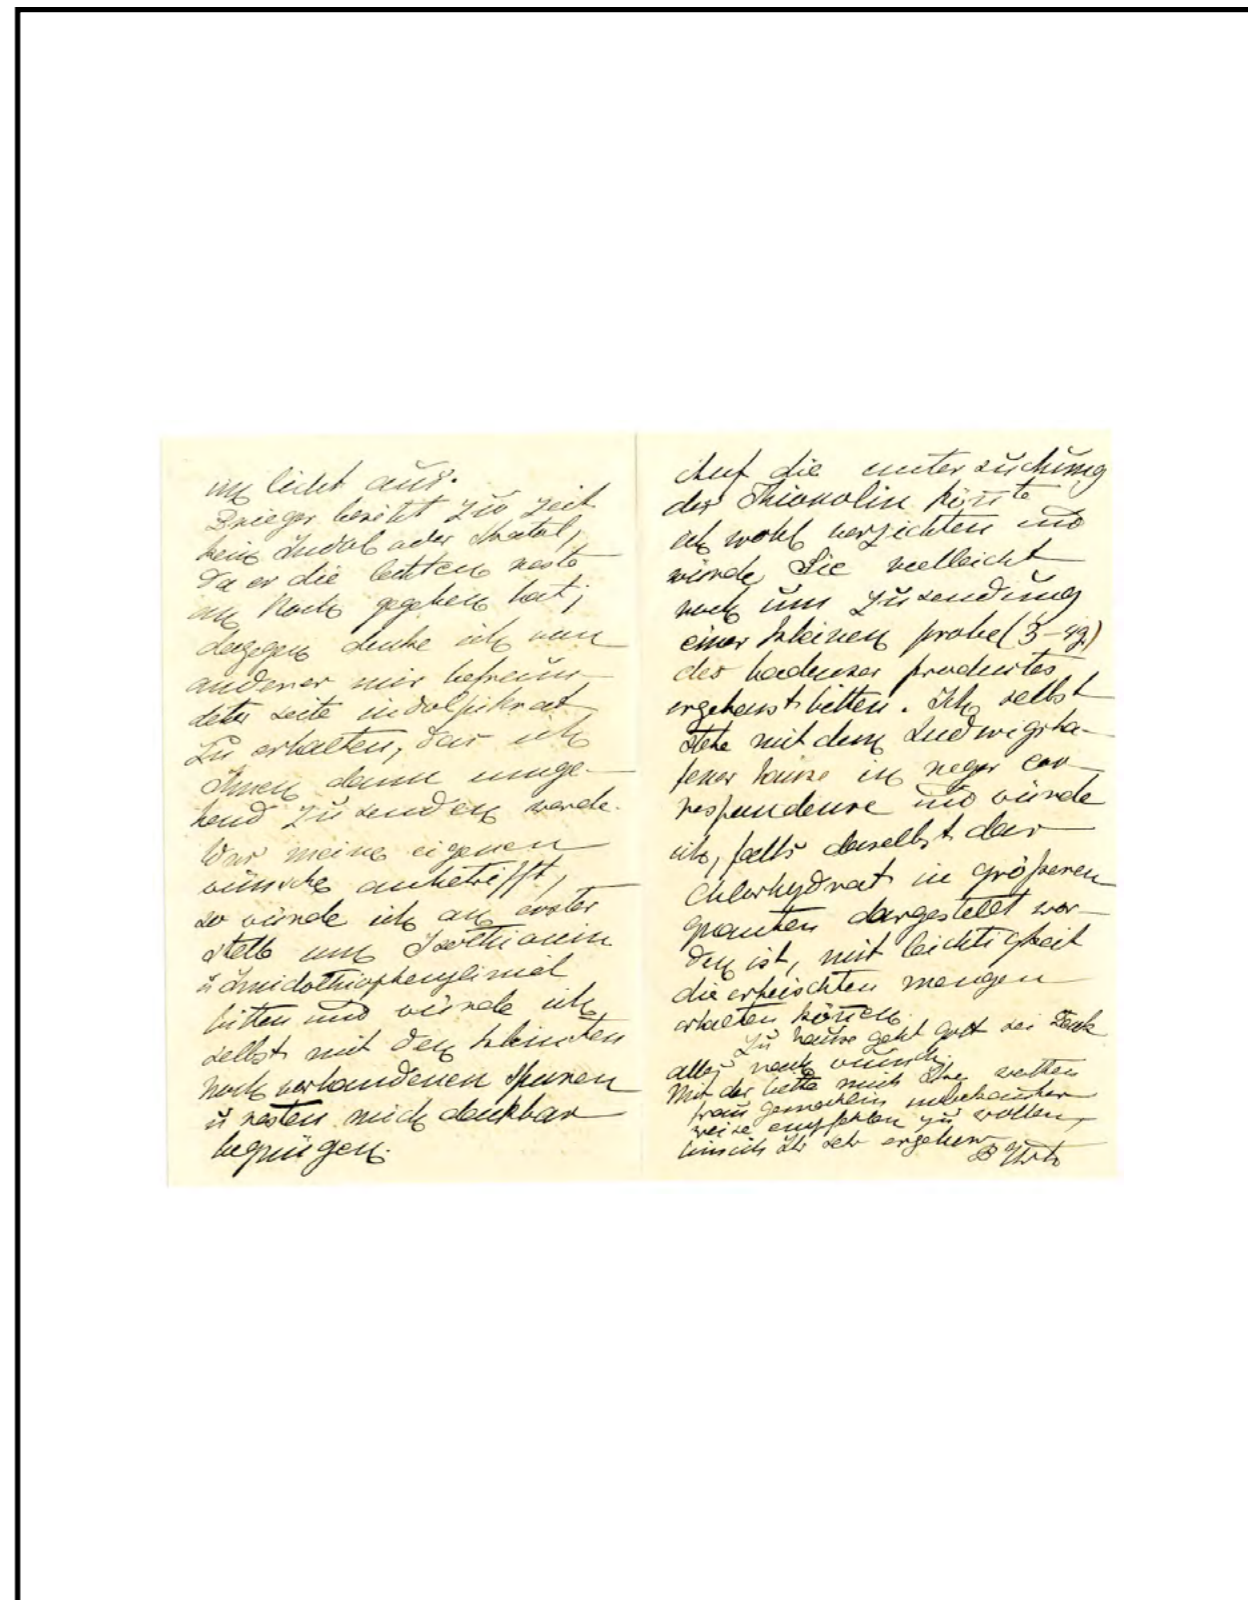 im licht aus.
Brieger besitzt zur zeit
kein Indol oder Skatol,
da er die letzten reste
an gegeben hat;
dagegen denke ich von
anderer mir befreun-
deter seite indolpikrat
zu erhalten, das ich
Ihnen dann umge-
hend zusenden werde.
Was meine eigenen
wünsche anbetrifft,
so würde ich an erster
stelle um Isothionin
u Imidothiophenylimid
bitten und würde ich
selbst mit den kleinsten
noch vorhandenen spuren
u resten mich dankbar
begnügen.
Auf die untersuchung
des Thionolin könnte
ich wohl verzichten und
würde Sie vielleicht
noch um zusendung
einer kleinen probe (3-4g)
des badenser productes
ergebenst bitten. Ich selbst
stehe mit dem Ludwigsha-
fener hause in reger cor-
respondence und würde
ich, falls daselbst das
Chlorhydrat in größeren
quanten dargestellt wor-
den ist, mit leichtigkeit
die erheischten mengen
erhalten können.
Zu hause geht gott sei dank
alles nach wunsch.
Mit der bitte mich Ihrer werten
frau gemahlin unbekannter
weise empfehlen zu wollen,
bin ich Ihr sehr ergebener